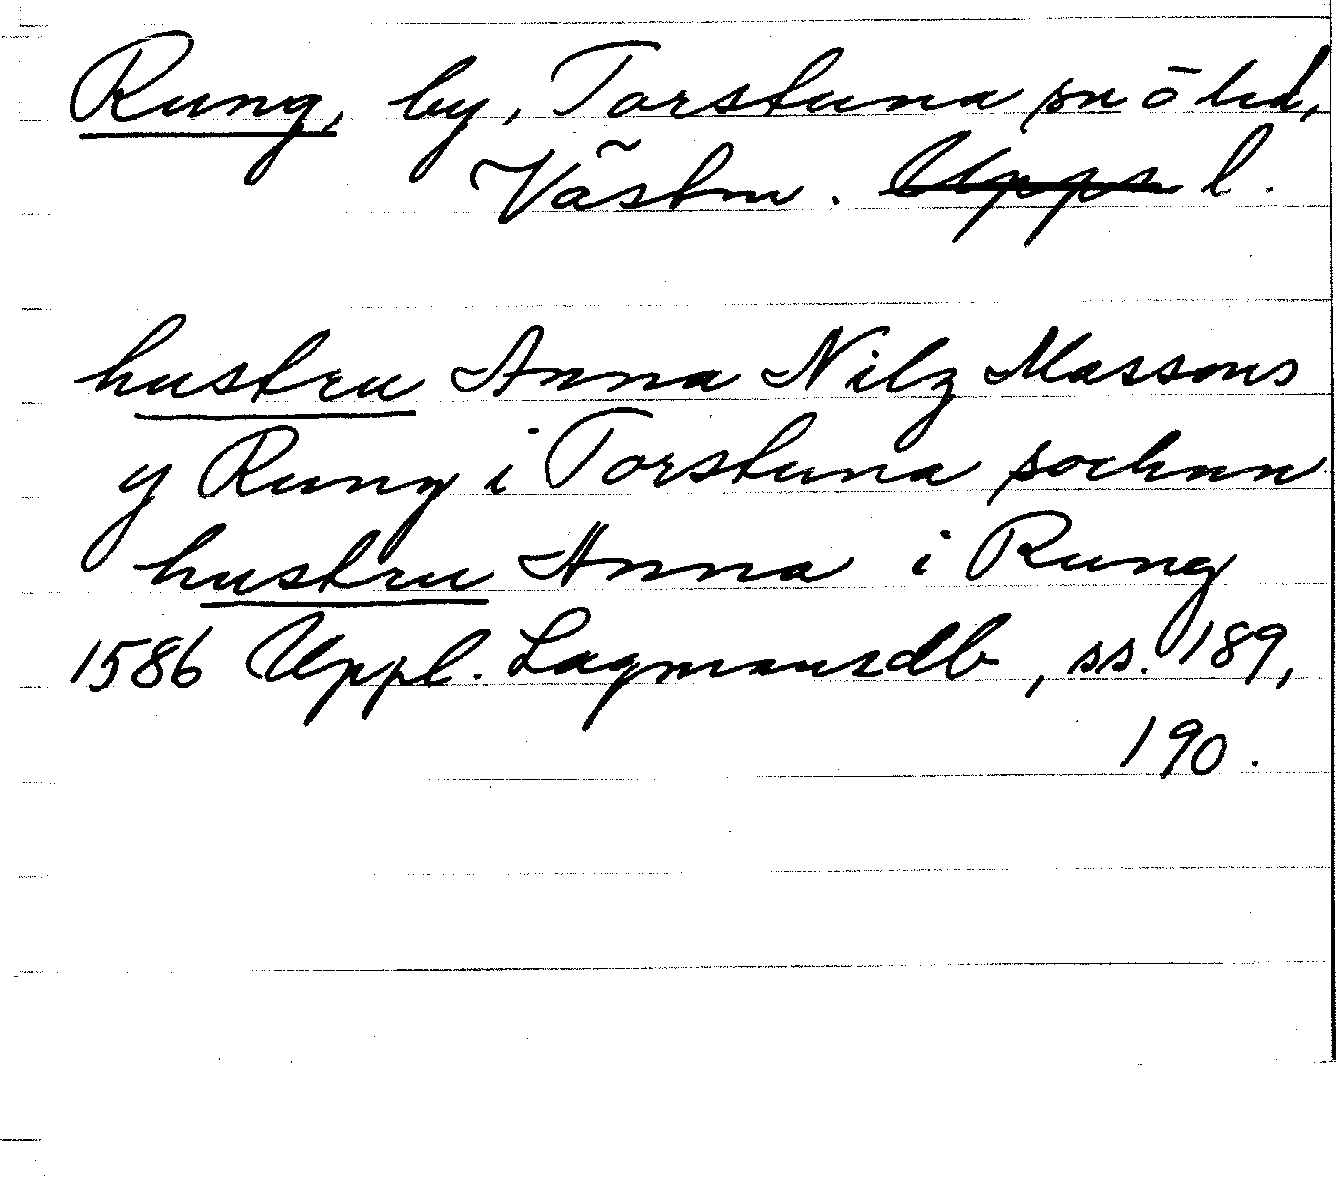 Rung, by, Torstuna sn o hd,
Västm. ~~Upps~~ l.
hustru Anna Nilz Massons
y Rung i Torstuna sochnn
hustru Anna i Rung
1586 Uppl. Lagmansdb, ss. 189,
190.